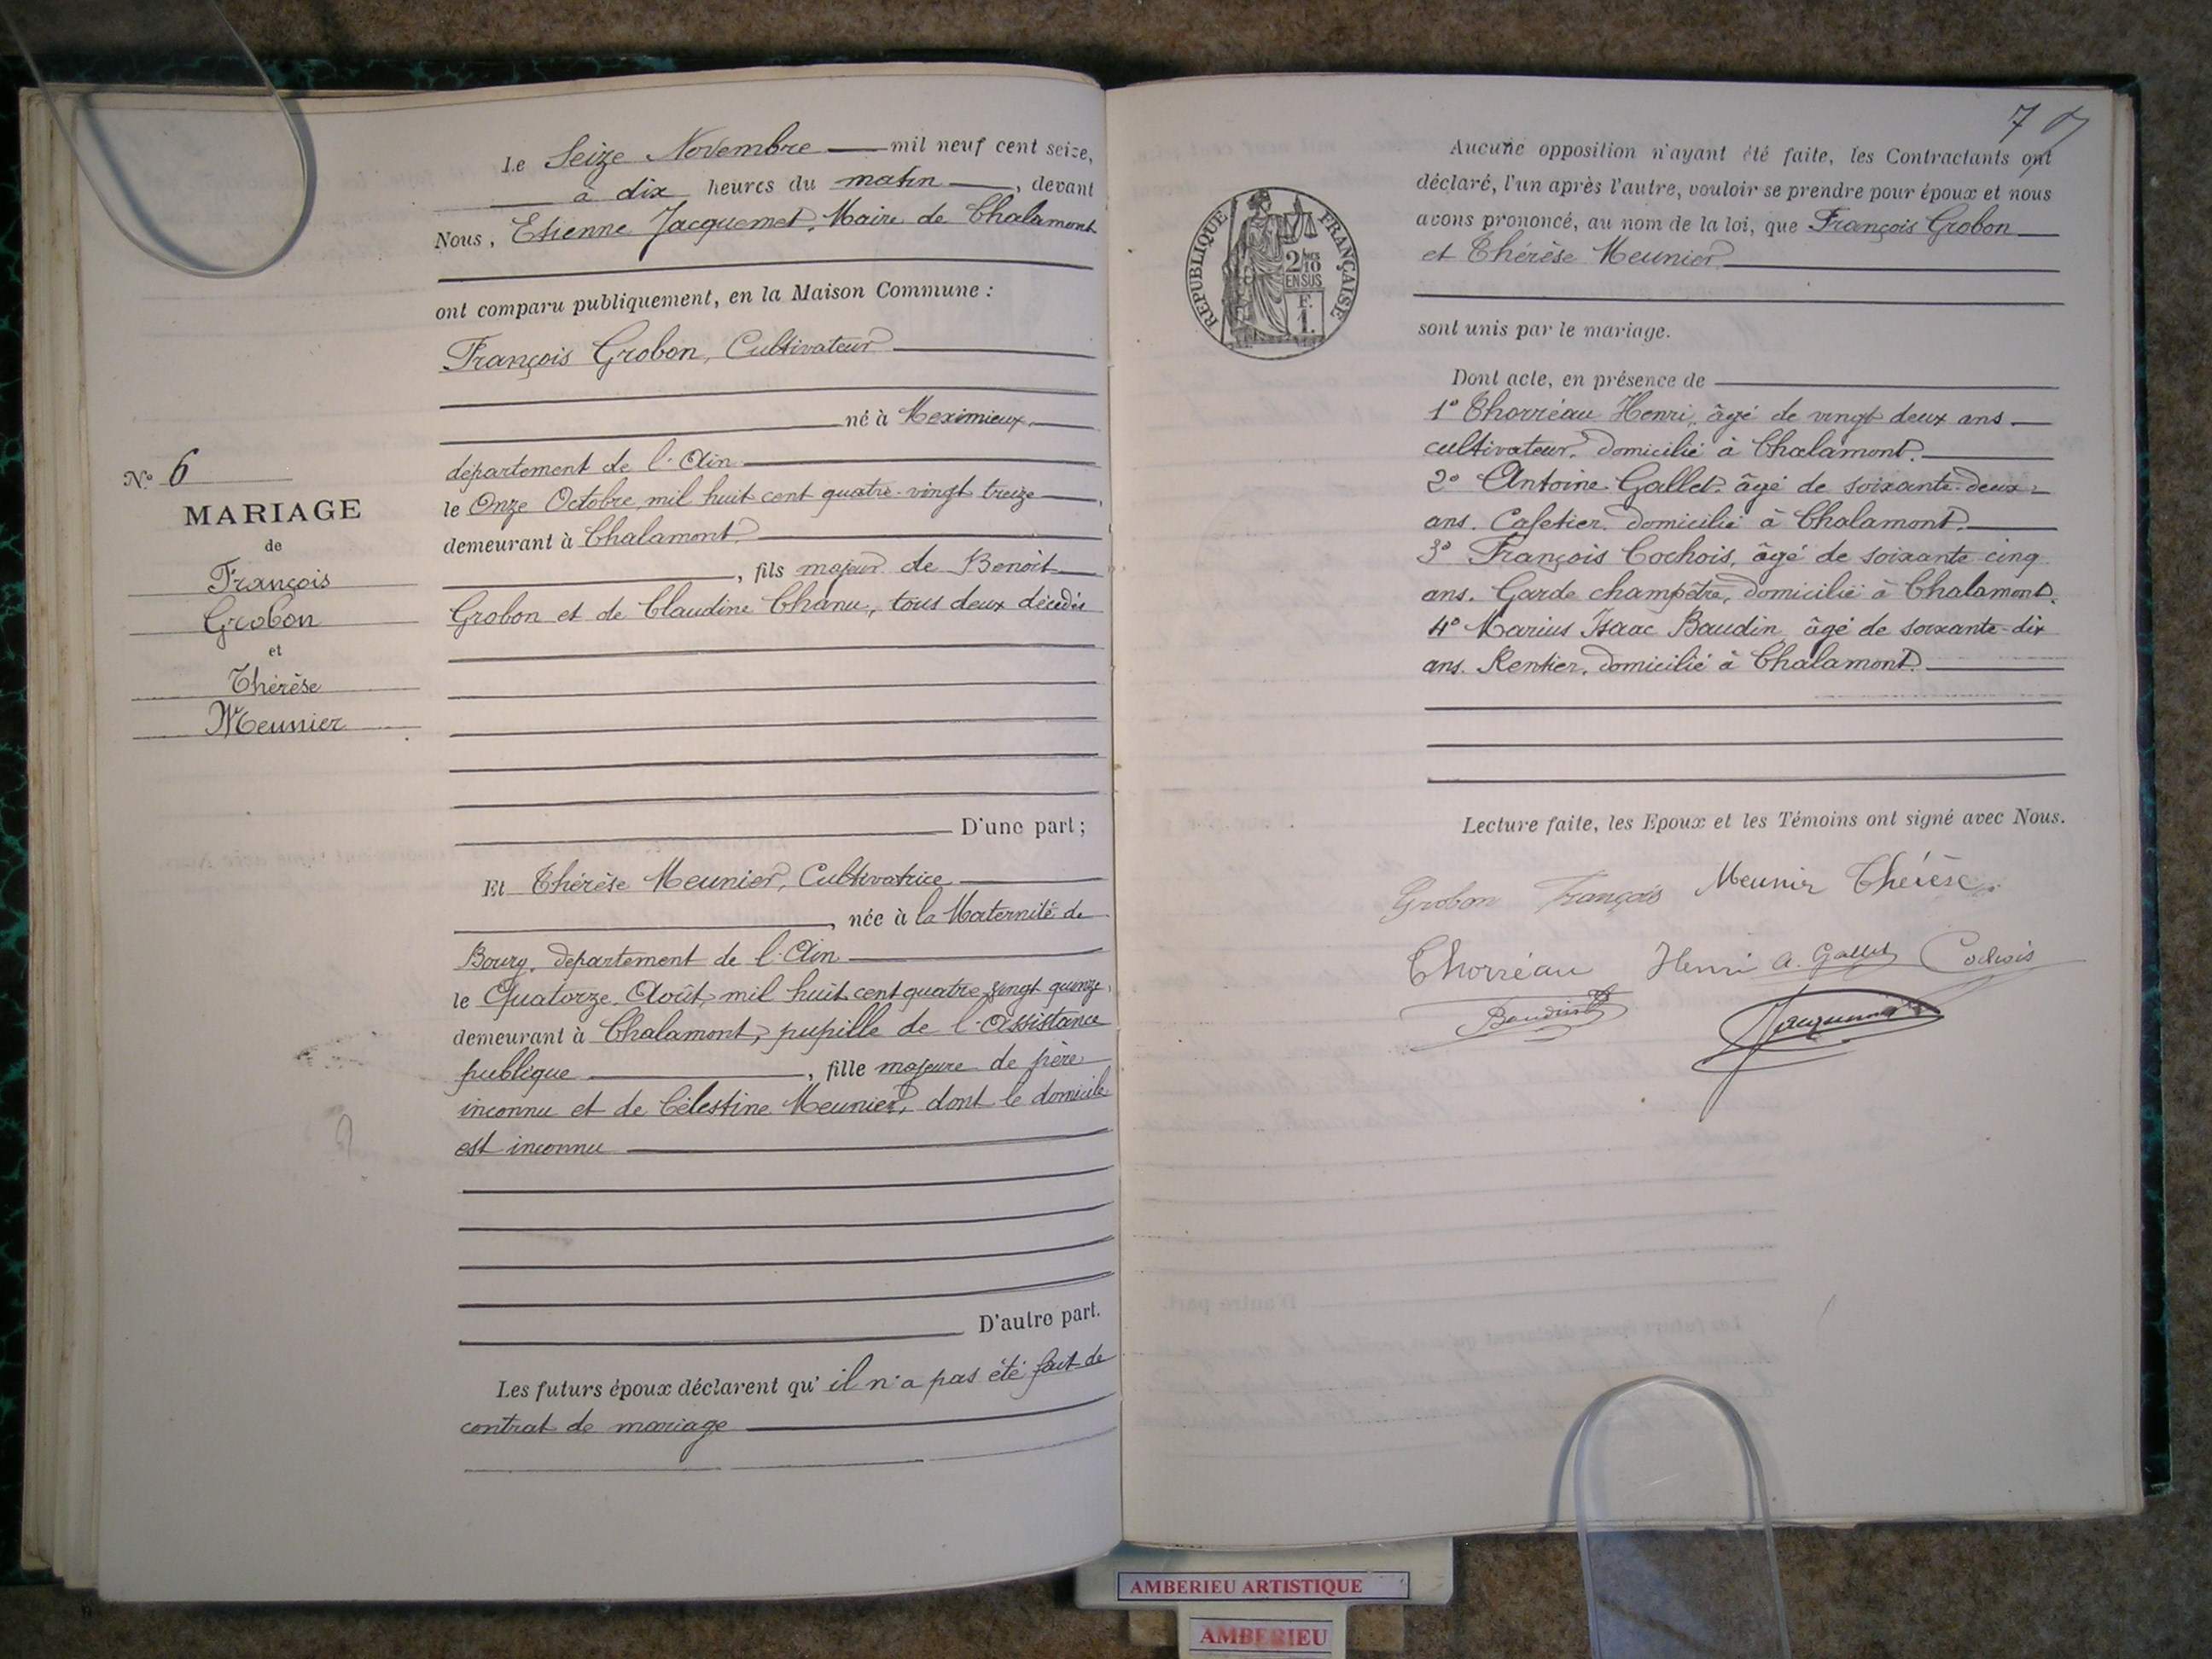 Le Seize Novembre mil neuf cent seize,
à dix heures du matin, devant
Nous, Etienne Jacquemet, Maire de Chalamont
ont comparu publiquement, en la Maison Commune :
François Grobon, Cultivateur
né à Meximieux,
département de l'Ain
le Onze Octobre mil huit cent quatre-vingt treize,
demeurant à Chalamont,
, fils majeur de Benoît
Grobon et de Claudine Chanu, tous deux décédés
D'une part ;
Et Thérèse Meunier, Cultivatrice
, née à la Maternité de
Bourg, département de l'Ain
le Quatorze Août mil huit cent quatre vingt quinze,
demeurant à Chalamont, pupille de l'Assistance
publique, fille majeure de père
inconnu et de Célestine Meunier, dont le domicile
est inconnu
D'autre part.
Les futurs époux déclarent qu'il n'a pas été fait de
contrat de mariage
N° 6
MARIAGE
de
François
Grobon
et
Thérèse
Meunier
7
REPUBLIQUE FRANÇAISE
2/10
EN SUS
F.
1.
Aucune opposition n'ayant été faite, les Contractants ont
déclaré, l'un après l'autre, vouloir se prendre pour époux et nous
avons prononcé, au nom de la loi, que François Grobon
et Thérèse Meunier
sont unis par le mariage.
Dont acte, en présence de
1° Thorréau Henri, âgé de vingt deux ans
cultivateur, domicilié à Chalamont.
2° Antoine Gallet, âgé de soixante-deux
ans. Cafetier domicilié à Chalamont.
3° François Cochois, âgé de soixante cinq
ans. Garde champêtre, domicilié à Chalamont.
4° Marius Isaac Baudin âgé de soixante-dix
ans. Rentier, domicilié à Chalamont.
Lecture faite, les Epoux et les Témoins ont signé avec Nous.
Grobon François Meunier Thérèse
Thorréau Henri A. Gallet Cochois
Baudin Jacquemet
AMBERIEU ARTISTIQUE
AMBERIEU